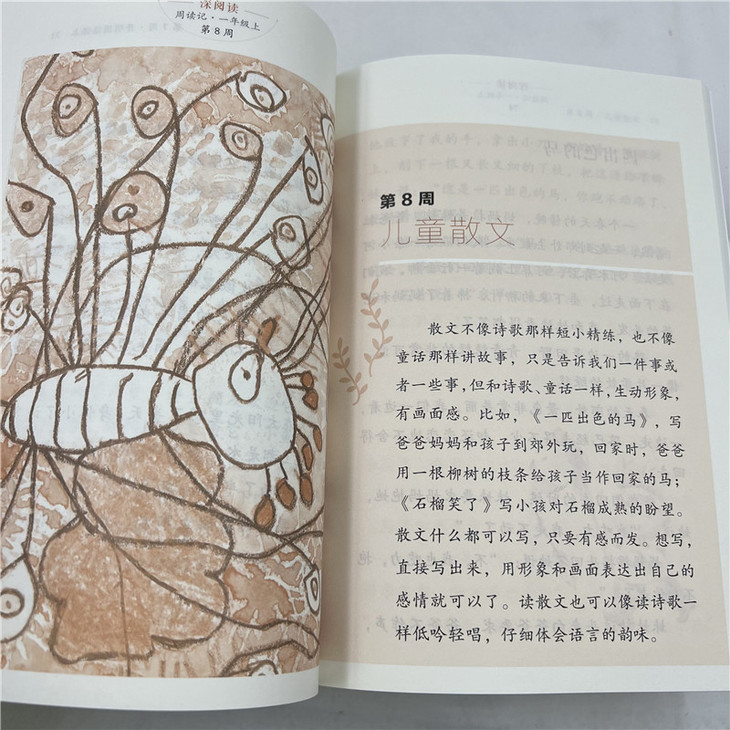 深阅读
周读记·一年级上
第8周
第8周
儿童散文
散文不像诗歌那样短小精练，也不像
童话那样讲故事，只是告诉我们一件事或
者一些事，但和诗歌、童话一样，生动形象，
有画面感。比如，《一匹出色的马》，写
爸爸妈妈和孩子到郊外玩，回家时，爸爸
用一根柳树的枝条给孩子当作回家的马；
《石榴笑了》写小孩对石榴成熟的盼望。
散文什么都可以写，只要有感而发。想写，
直接写出来，用形象和画面表达出自己的
感情就可以了。读散文也可以像读诗歌一
样低吟轻唱，仔细体会语言的韵味。